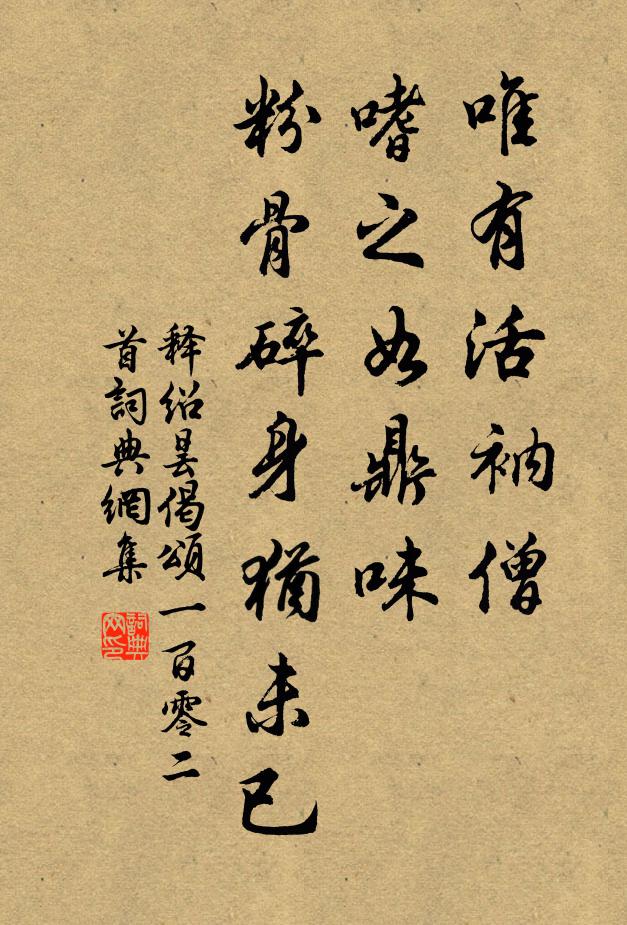 唯有活衲僧
嗜之如鼎味
粉骨碎身猶未已
释绍昙偈頌一百零二
首詞典網集
詞典網印